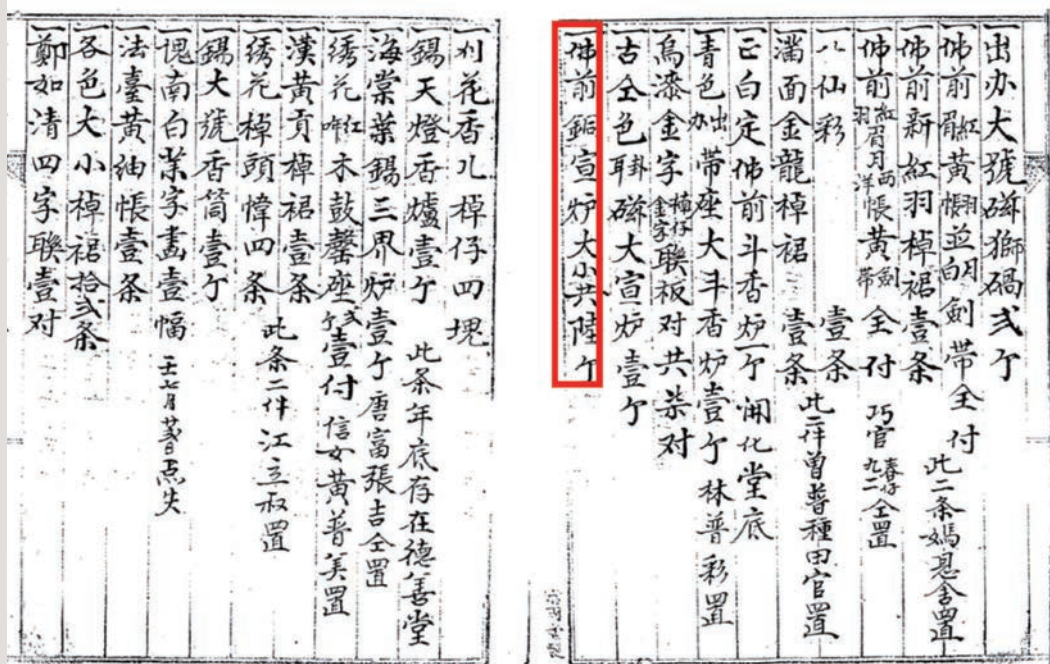 一出办大號磁獅碢弍个
一佛前紅眉黃幔並月白劍帶全付 此二条媽恩舍置
一佛前新紅羽棹裙壹条
一佛前紅羽眉月西洋帳黃劍帶全付 巧官春仔九二仝置
一八仙彩 壹条
一滿面金龍棹裙 壹条 此二件曾普種田官置
一正白定佛前斗香炉一个 開化堂底
一青色出办带座大斗香炉壹个 林普彩置
一烏漆金字聯板对共柒对
一古仝色卦耳磁大宣炉壹个
一佛前銅宣炉大小共陸个
一刈花香几棹仔四塊
一錫天燈香爐壹个 此条年底存在德善堂
一海棠葉錫三界炉壹个 唐富張吉仝置
一綉花紅咋木鼓磬座弍个壹付 信女黃普美置
一漢黃貢棹裙壹条
一綉花棹頭幃四条 此条二件江立叔置
一錫大號香筒壹个
一愧南白業字畫壹幅
一法臺黃紬帳壹条
一各色大小棹裙拾弍条
一鄭如清四字聯壹对